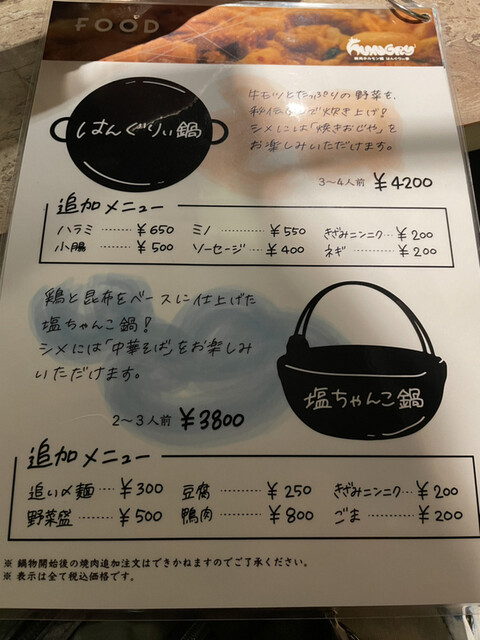 FOOD
HUNGRY
はんぐりぃ鍋
牛モツとたっぷりの野菜を、
焼き上げ!
シメには「焼きおじや」を
お楽しみいただけます。
3〜4人前 ¥4200
追加メニュー
ハラミ ¥650 ミノ ¥550 きざみニンニク ¥200
小腸 ¥500 ソーセージ ¥400 ネギ ¥200
鶏と昆布をベースに仕上げた
塩ちゃんこ鍋!
シメには「中華そば」をお楽しみ
いただけます。
塩ちゃんこ鍋
2〜3人前 ¥3800
追加メニュー
追い〆麺 ¥300 豆腐 ¥250 きざみニンニク ¥200
野菜盛 ¥500 鴨肉 ¥800 ごま ¥200
※ 鍋物開始後の焼肉追加注文はできかねますのでご了承ください。
※ 表示は全て税込価格です。